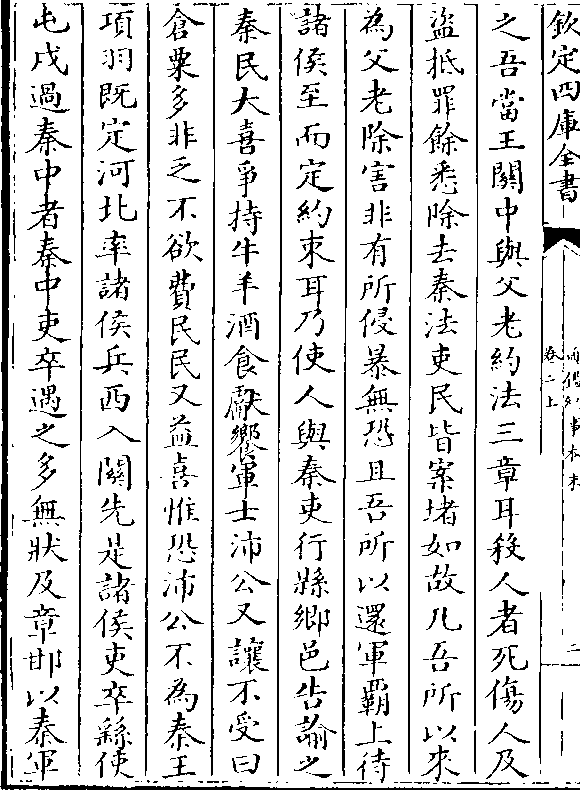 欽定四庫全書
卷二上
二
之吾當王關中與父老約法三章耳殺人者死傷人及
盜抵罪餘悉除去秦法吏民皆案堵如故凡吾所以來
為父老除害非有所侵暴無恐且吾所以還軍霸上待
諸侯至而定約束耳乃使人與秦吏行縣鄉邑告諭之
秦民大喜爭持牛羊酒食獻饗軍士沛公又讓不受曰
倉粟多非乏不欲費民民又益喜惟恐沛公不為秦王
項羽既定河北率諸侯兵西入關先是諸侯吏卒繇使
屯戍過秦中者秦中吏卒遇之多無狀及章邯以秦軍